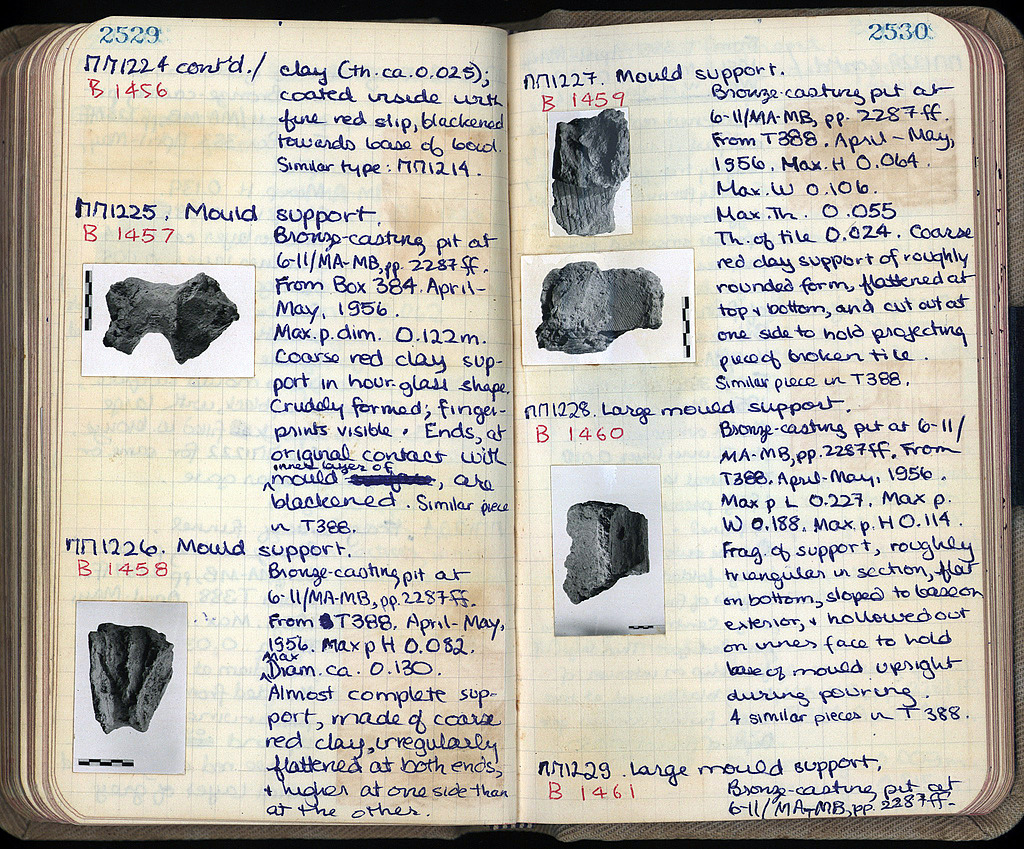 2529
ΠΠ1224 cont'd./
B 1456
clay (th. ca. 0.025);
coated inside with
fine red slip, blackened
towards base of bowl.
Similar type: ΠΠ1214.
ΠΠ1225. Mould support.
B 1457
Bronze-casting pit at
6-11/MA-MB, pp. 2287ff.
From Box 384. April-
May, 1956.
Max. p. dim. 0.122m.
Coarse red clay sup-
port in hour glass shape.
Crudely formed; finger-
prints visible. Ends, at
original contact with
inner layer of
mould, are
blackened. Similar piece
in T388.
ΠΠ1226. Mould support.
B 1458
Bronze-casting pit at
6-11/MA-MB, pp. 2287ff.
From T388. April-May,
1956. Max p H 0.082.
Max
Diam. ca. 0.130.
Almost complete sup-
port, made of coarse
red clay, irregularly
flattened at both ends,
+ higher at one side than
at the other.
2530
ΠΠ1227. Mould support.
B 1459
Bronze-casting pit at
6-11/MA-MB, pp. 2287ff.
From T388. April-May,
1956. Max. H 0.064.
Max. W 0.106.
Max. Th. 0.055
Th. of tile 0.024. Coarse
red clay support of roughly
rounded form, flattened at
top + bottom, and cut out at
one side to hold projecting
piece of broken tile.
Similar piece in T388.
ΠΠ1228. Large mould support.
B 1460
Bronze-casting pit at 6-11/
MA-MB, pp. 2287ff. From
T388. April-May, 1956.
Max p L 0.227. Max p.
W 0.188. Max. p. H 0.114.
Frag. of support, roughly
triangular in section, flat
on bottom, sloped to base on
exterior, + hollowed out
on inner face to hold
base of mould upright
during pouring.
4 similar pieces in T388.
ΠΠ1229. Large mould support.
B 1461
Bronze-casting pit at
6-11/MA-MB, pp. 2287ff.